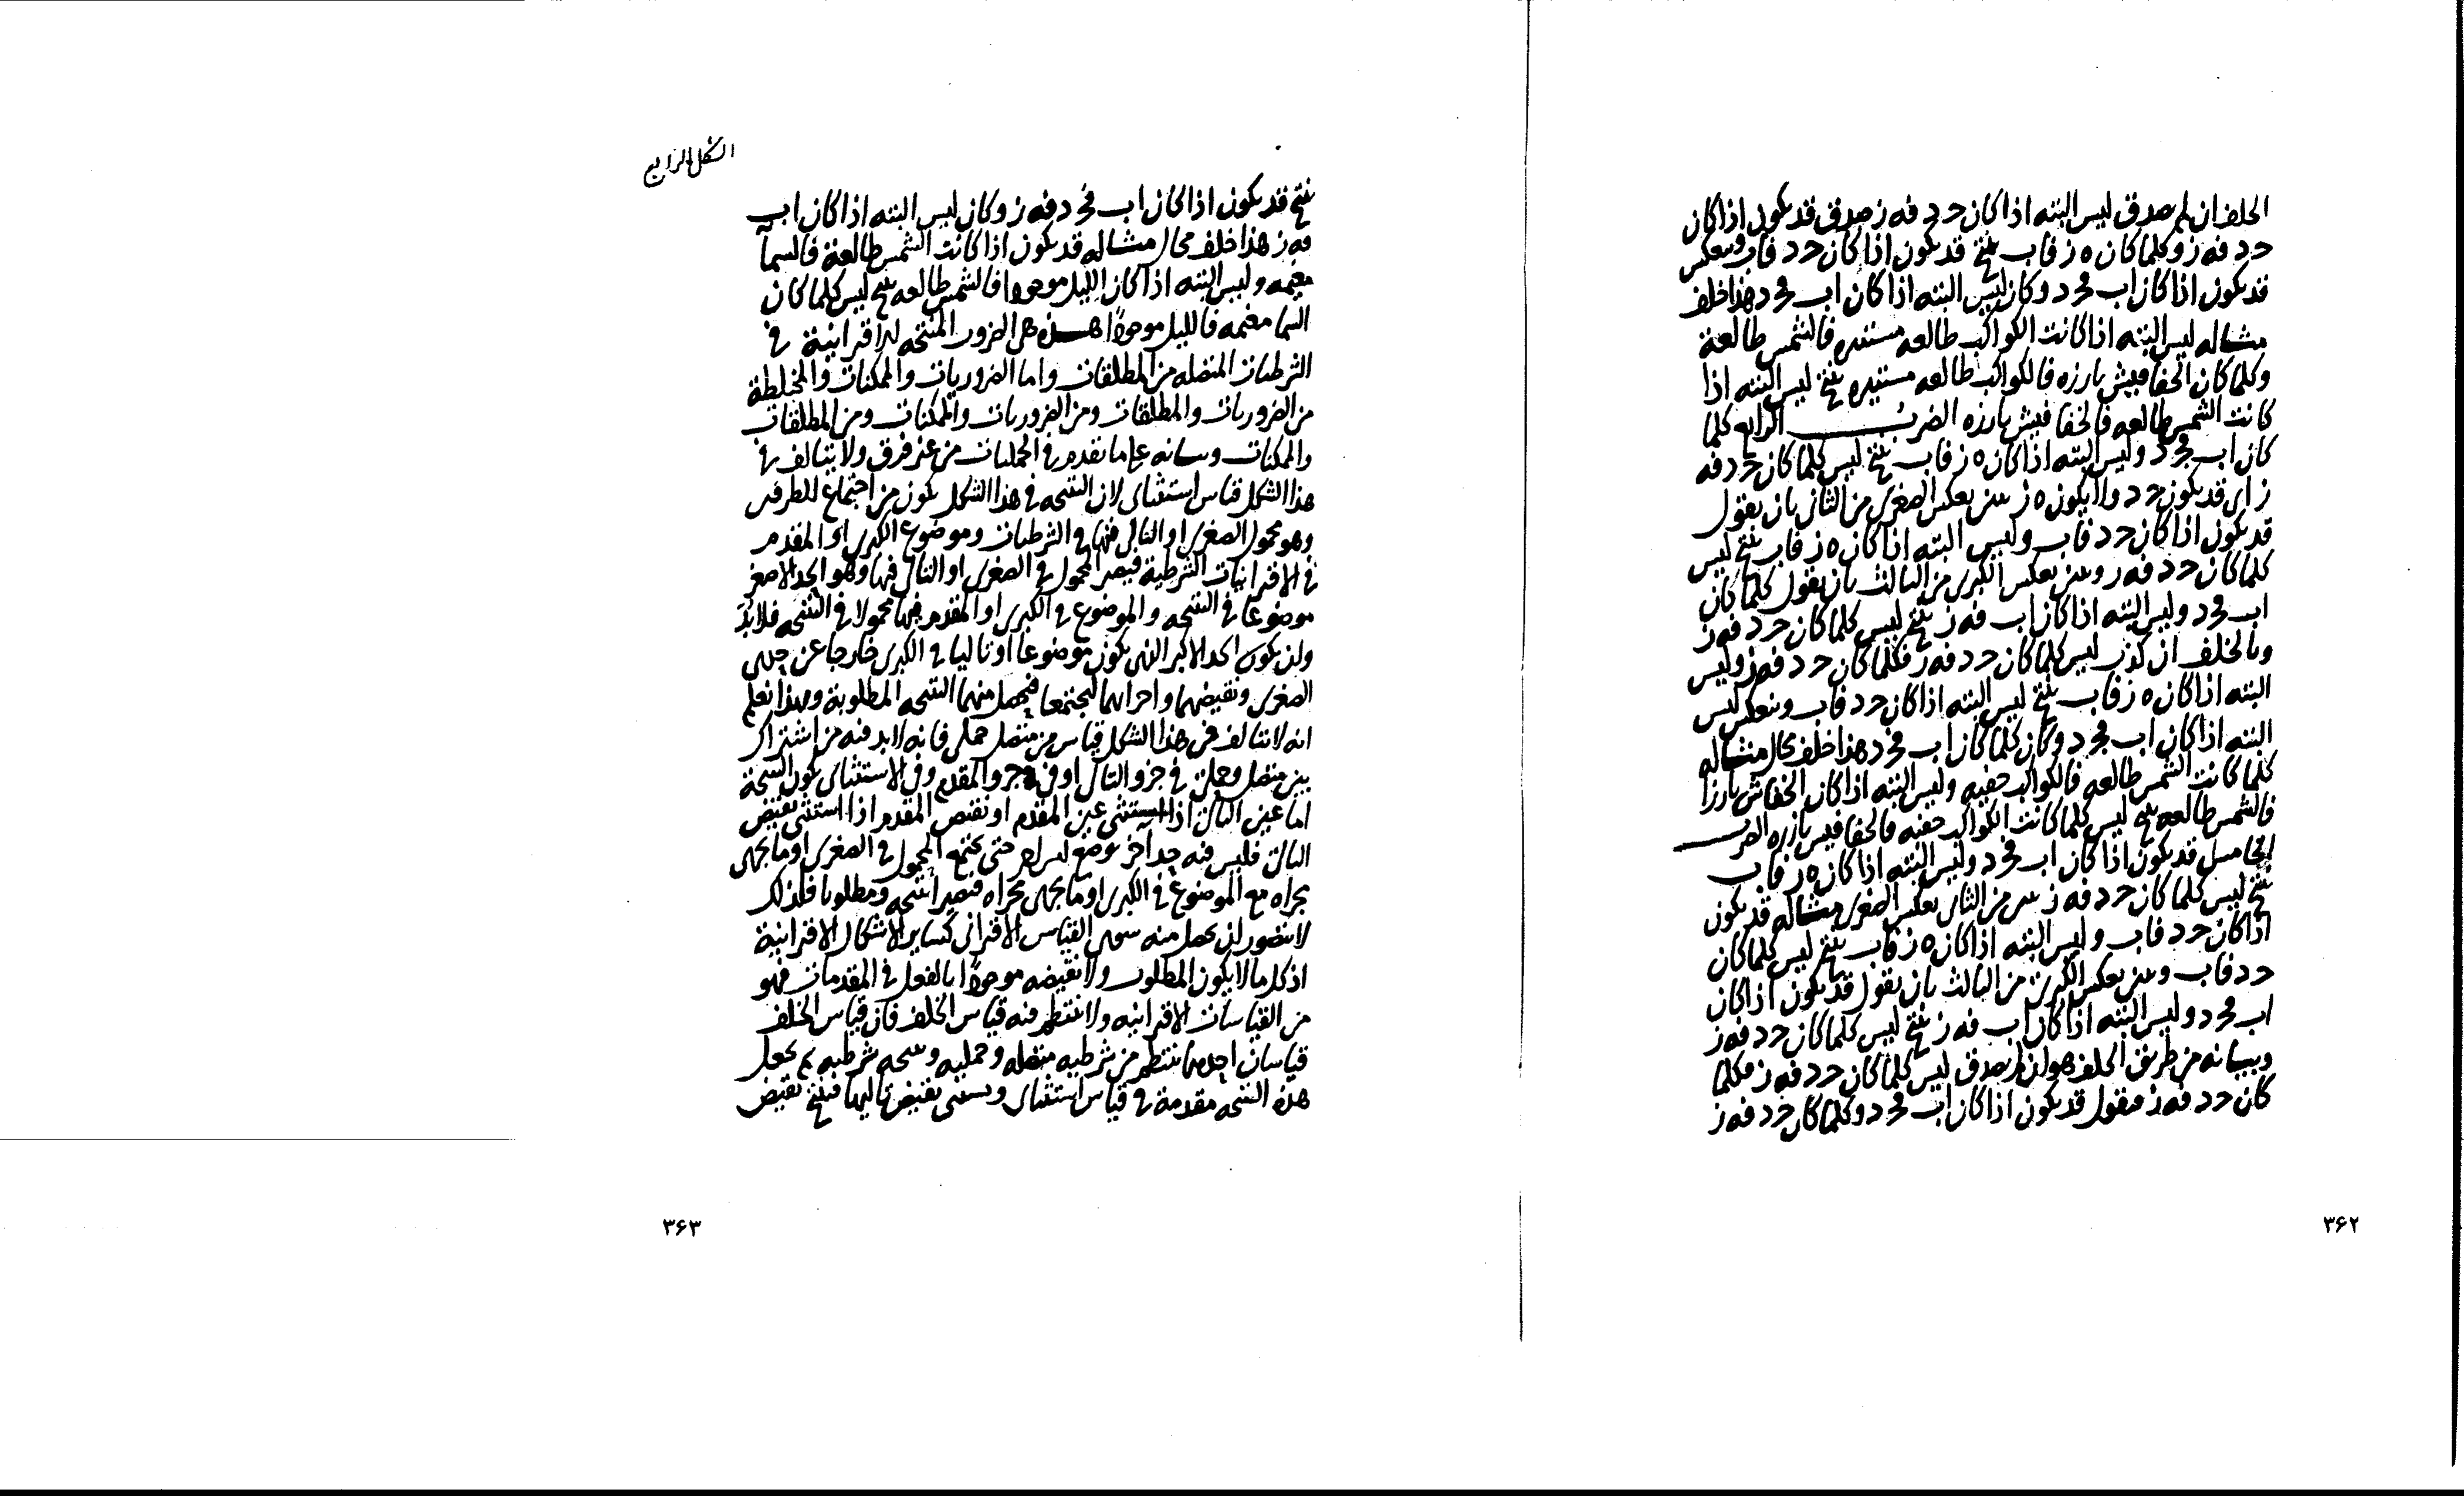 الخلف ان لم يصدق ليس البته اذا كان حد فه ز صدق قد يكون اذا كان
حد فه ز وكلما كان ه ز فاب ينتج قد يكون اذا كان حد فاب وينعكس
قد يكون اذا كان اب فحد وكان ليس البته اذا كان اب فحد هذا خلف
مثاله ليس البته اذا كانت الكواكب طالعه مستنيره فالشمس طالعة
وكلما كان الخفافيش بارزه فالكواكب طالعه مستنيره ينتج ليس البته اذا
كانت الشمس طالعه فالخفافيش بارزه الضرب الرابع كلما
كان اب فحد وليس البته اذا كان ه ز فاب ينتج ليس كلما كان حد فه
ز اى قد يكون حد ولا يكون ه ز يبين بعكس الصغرى من الثانى بان يقول
قد يكون اذا كان حد فاب وليس البته اذا كان ه ز فاب ينتج ليس
كلما كان حد فه ز ويبين بعكس الكبرى من الثالث بان يقول كلما كان
اب فحد وليس البته اذا كان اب فه ز ينتج ليس كلما كان حد فه ز
وبالخلف ان كذب ليس كلما كان حد فه ز فكلما كان حد فه ز وليس
البته اذا كان ه ز فاب ينتج ليس البته اذا كان حد فاب وينعكس ليس
البته اذا كان اب فحد وكان كلما كان اب فحد هذا خلف محال مثاله
كلما كانت الشمس طالعه فالكواكب خفيه وليس البته اذا كان الخفاش بارزا
فالشمس طالعه ينتج ليس كلما كانت الكواكب خفيه فالخفافيش بارزه الضرب
الخامس قد يكون اذا كان اب فحد وليس البته اذا كان ه ز فاب
ينتج ليس كلما كان حد فه ز يبين من الثانى بعكس الصغرى مثاله قد يكون
اذا كان حد فاب وليس البته اذا كان ه ز فاب ينتج ليس كلما كان
حد فاب ويبين بعكس الكبرى من الثالث بان يقول قد يكون اذا كان
اب فحد وليس البته اذا كان اب فه ز ينتج ليس كلما كان حد فه ز
وبيانه من طريق الخلف هو ان لم يصدق ليس كلما كان حد فه ز فكلما
كان حد فه ز فنقول قد يكون اذا كان اب فحد وكلما كان حد فه ز
٣۶٢
الشكل الرابع
ينتج قد يكون اذا كان اب فحد فه ز وكان ليس البته اذا كان اب
فه ز هذا خلف محال مثاله قد يكون اذا كانت الشمس طالعة فالسمآ
مغيمه وليس البته اذا كان الليل موجودا فالشمس طالعه ينتج ليس كلما كان
السما مغيمه فالليل موجودًا هذه هى الضروب المنتجه للاقترانية فى
الشرطيات المتصله من المطلقات واما الضروريات والممكنات والمختلطة
من الضروريات والمطلقات ومن الضروريات والممكنات ومن المطلقات
والممكنات وبيانه على ما تقدم فى الحمليات من غير فرق ولا يتالف فى
هذا الشكل قياس استثنائى لان النتيجه فى هذا الشكل يكون من اجتماع الطرفين
وهو محمول الصغرى او التالى فيها فى الشرطيات وموضوع الكبرى او المقدم
فى الاقترانيات الشرطية فيصير المحمول فى الصغرى او التالى فيها وهو الحد الاصغر
موضوعًا فى النتيجه والموضوع فى الكبرى او المقدم فيها محمولا فى النتيجه فلابدّ
وان يكون الحد الاكبر الذى يكون موضوعا او تاليا فى الكبرى خارجا عن جزئى
الصغرى ونقيضهما واجزائهما ليجتمعا فيحصل منهما النتيجه المطلوبة وبهذا نعلم
انه لا يتالف فى هذا الشكل قياس من متصل حملى فانه لابد فيه من اشتراك
بين متصل وحملى فى جزو التالى او فى جزو المقدم وفى الاستثنائى يكون النتيجة
اما عين التالى اذا استثنى عين المقدم او نقيض المقدم اذا استثنى نقيض
التالى فليس فيه حد آخر حتى يجتمع المحمول فى الصغرى او ما يجرى
مجراه مع الموضوع فى الكبرى او ما يجرى مجراه فيصير نتيجه ومطلوبا فلذلك
لا يتصور ان يحصل منه سوى القياس الاقترانى كساير الاشكال الاقترانية
اذ كل ما لا يكون المطلوب ولا نقيضه موجودًا بالفعل فى المقدمات فهو
من القياسات الاقترانيه ولا ينتظم منه قياس الخلف فان قياس الخلف
قياسان احدهما ينتظم من شرطيه متصله وحمليه ونتيجه شرطيه ثم يجعل
هذه النتيجه مقدمة فى قياس استثنائى ويستثنى نقيض تاليها فينتج نقيض
٣۶٣